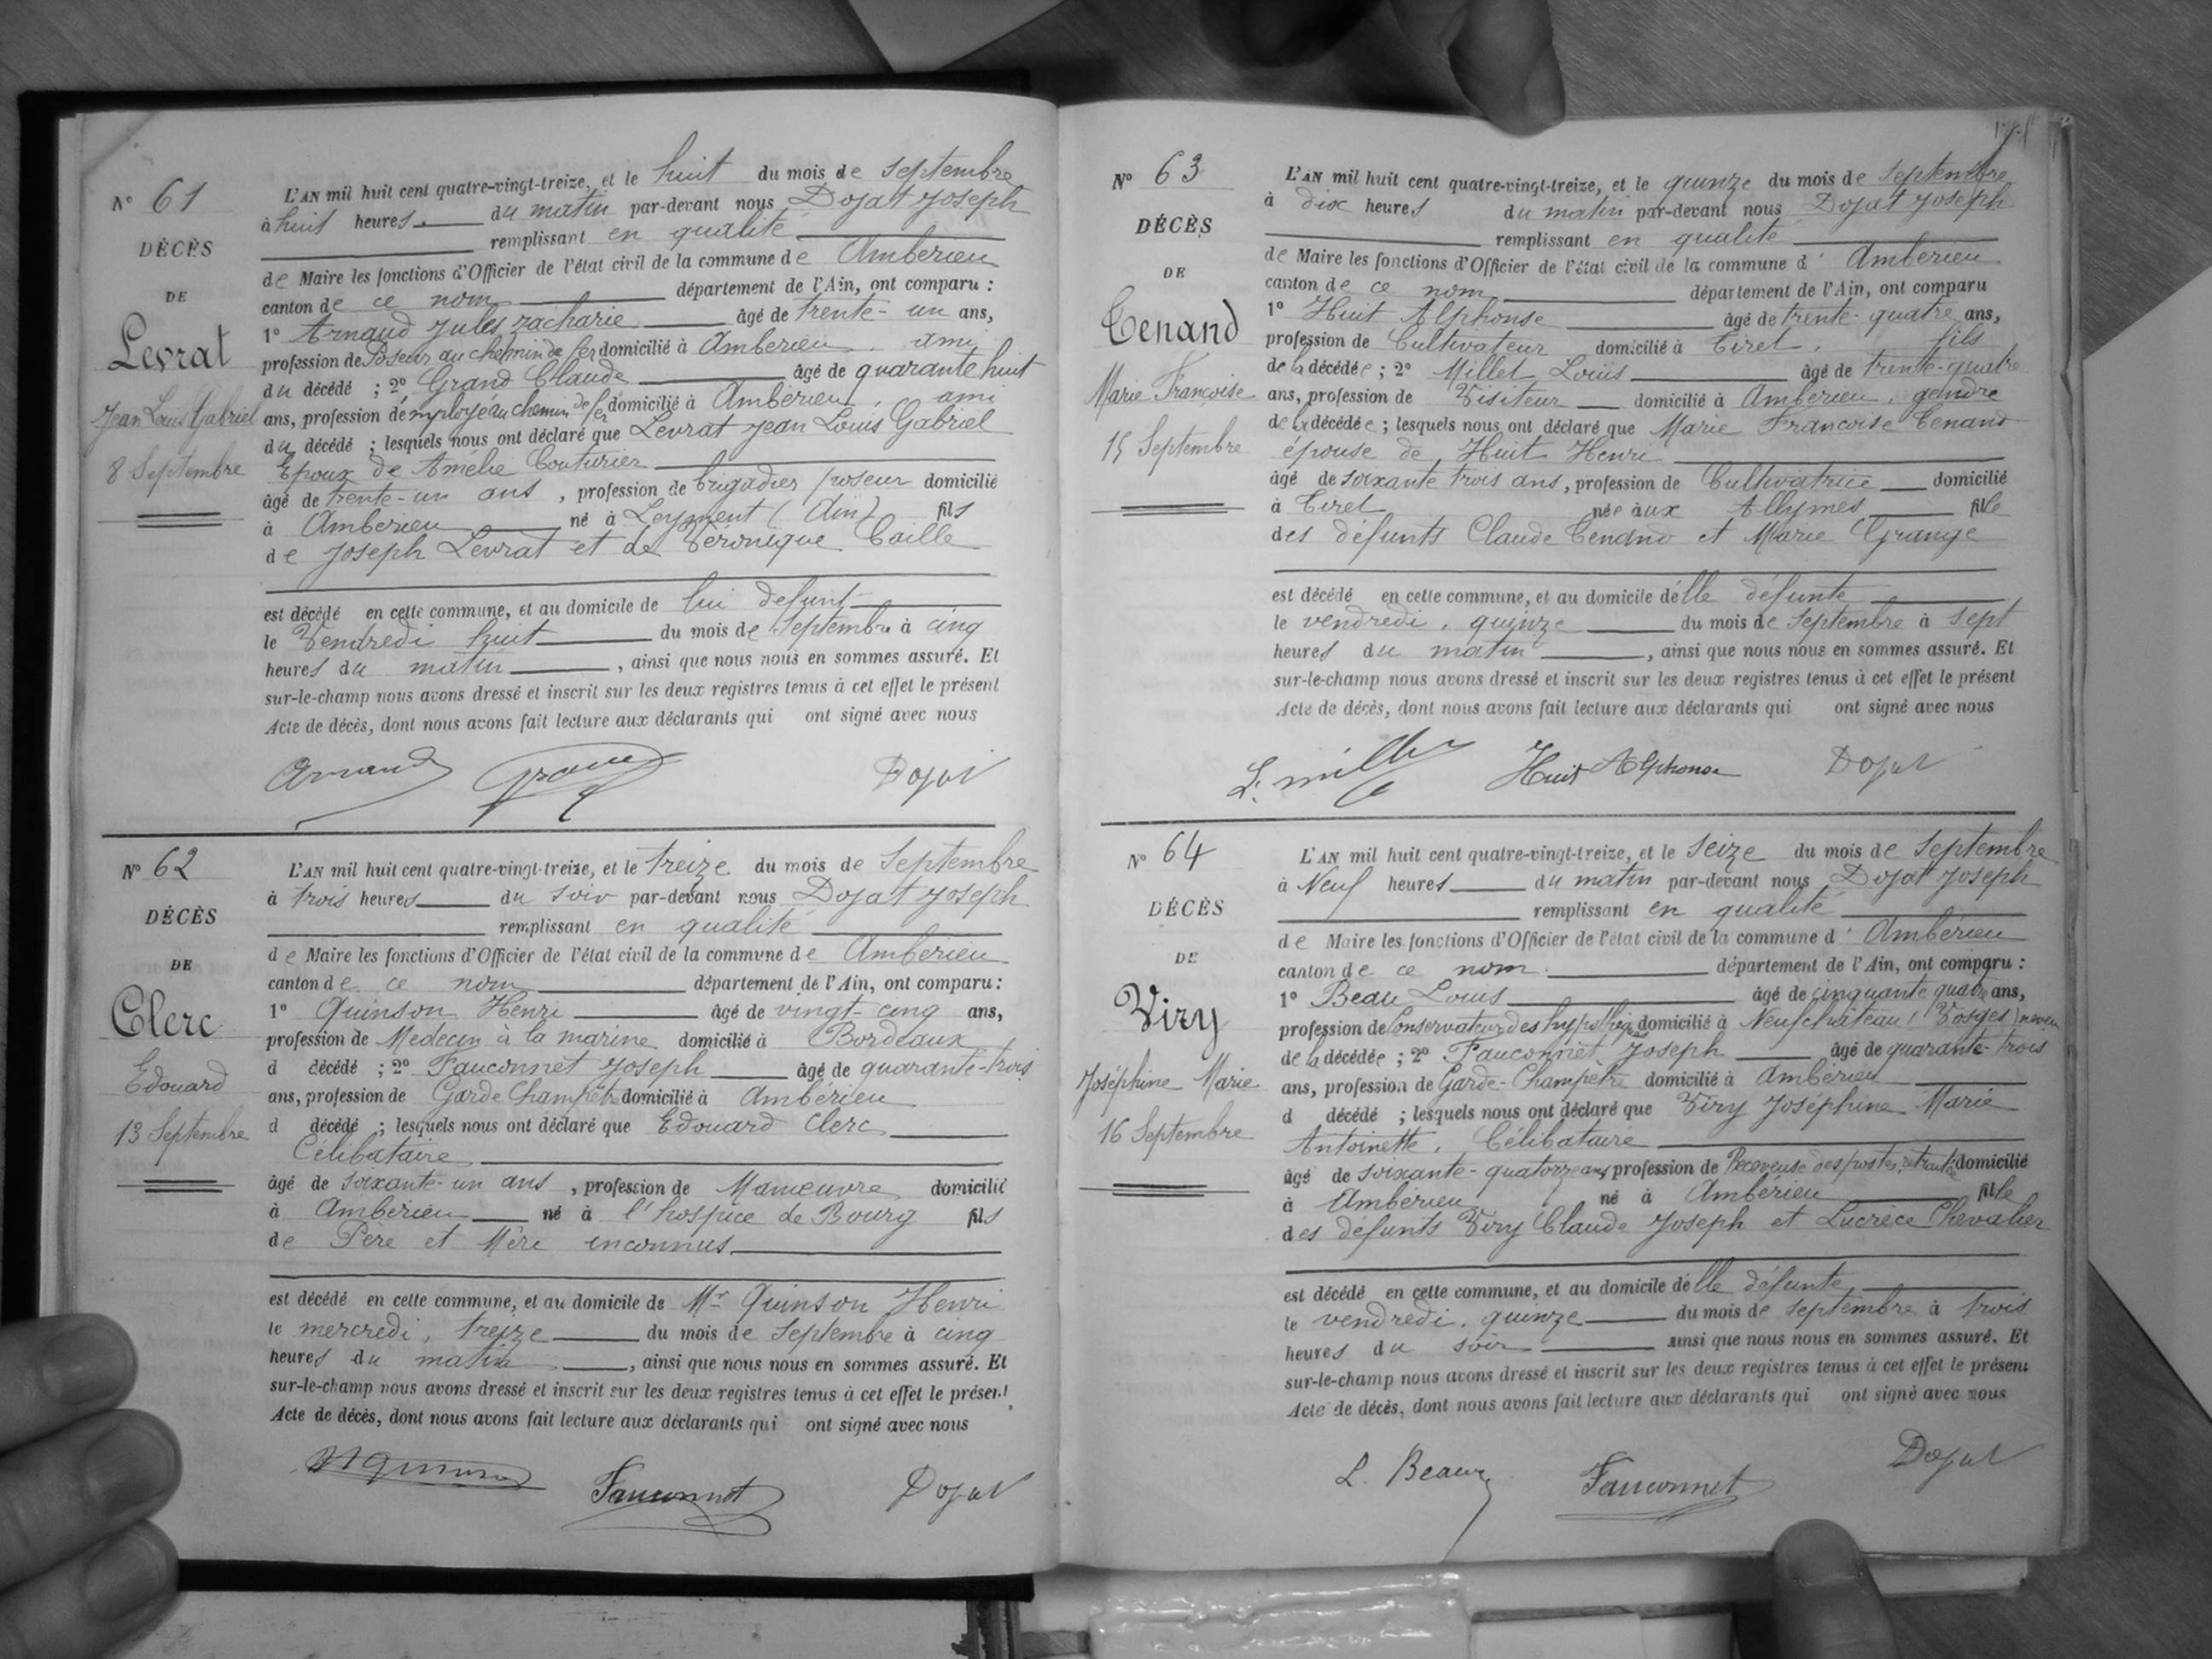 N° 61
DÉCÈS
DE
Levrat
Jean Louis Gabriel
8 Septembre
L'AN mil huit cent quatre-vingt-treize, et le huit du mois de Septembre
à huit heures du matin par-devant nous Dojat Joseph
remplissant en qualité
de Maire les fonctions d'Officier de l'état civil de la commune de Ambérieu
canton de ce nom département de l'Ain, ont comparu :
1° Arnaud Jules Zacharie âgé de trente-un ans,
profession de Poseur au chemin de fer domicilié à Ambérieu, ami
du décédé ; 2° Grand Claude âgé de quarante huit
ans, profession d'employé au chemin de fer domicilié à Ambérieu, ami
du décédé ; lesquels nous ont déclaré que Levrat Jean Louis Gabriel
Epoux de Amélie Couturier
âgé de trente-un ans, profession de brigadier poseur domicilié
à Ambérieu né à Leyment (Ain) fils
de Joseph Levrat et de Véronique Caille
est décédé en cette commune, et au domicile de lui défunt
le Vendredi huit du mois de Septembre à cinq
heures du matin, ainsi que nous nous en sommes assuré. Et
sur-le-champ nous avons dressé et inscrit sur les deux registres tenus à cet effet le présent
Acte de décès, dont nous avons fait lecture aux déclarants qui ont signé avec nous
Arnaud Grand Dojat
N° 62
DÉCÈS
DE
Clerc
Edouard
13 Septembre
L'AN mil huit cent quatre-vingt-treize, et le treize du mois de Septembre
à trois heures du soir par-devant nous Dojat Joseph
remplissant en qualité
de Maire les fonctions d'Officier de l'état civil de la commune de Ambérieu
canton de ce nom département de l'Ain, ont comparu :
1° Quinson Henri âgé de vingt-cinq ans,
profession de Medecin à la marine domicilié à Bordeaux
d décédé ; 2° Fauconnet Joseph âgé de quarante-trois
ans, profession de Garde Champêtre domicilié à Ambérieu
d décédé ; lesquels nous ont déclaré que Edouard Clerc
Célibataire
âgé de soixante-un ans, profession de Manœuvre domicilié
à Ambérieu né à l'hospice de Bourg fils
de Père et Mère inconnus
est décédé en cette commune, et au domicile de Mr Quinson Henri
le mercredi, treize du mois de Septembre à cinq
heures du matin, ainsi que nous nous en sommes assuré. Et
sur-le-champ nous avons dressé et inscrit sur les deux registres tenus à cet effet le présent
Acte de décès, dont nous avons fait lecture aux déclarants qui ont signé avec nous
H Quinson Fauconnet Dojat
N° 63
DÉCÈS
DE
Tenand
Marie Françoise
15 Septembre
L'AN mil huit cent quatre-vingt-treize, et le quinze du mois de Septembre
à dix heures du matin par-devant nous Dojat Joseph
remplissant en qualité
de Maire les fonctions d'Officier de l'état civil de la commune d'Ambérieu
canton de ce nom département de l'Ain, ont comparu
1° Huit Alphonse âgé de trente-quatre ans,
profession de Cultivateur domicilié à Tiret, fils
de la décédée ; 2° Millet Louis âgé de trente-quatre
ans, profession de Visiteur domicilié à Ambérieu, gendre
de la décédée ; lesquels nous ont déclaré que Marie Françoise Tenand
épouse de Huit Henri
âgé de soixante trois ans, profession de Cultivatrice domicilié
à Tiret née aux Allymes fille
des défunts Claude Tenand et Marie Grange
est décédé en cette commune, et au domicile d'elle défunte
le vendredi, quinze du mois de Septembre à sept
heures du matin, ainsi que nous nous en sommes assuré. Et
sur-le-champ nous avons dressé et inscrit sur les deux registres tenus à cet effet le présent
Acte de décès, dont nous avons fait lecture aux déclarants qui ont signé avec nous
L. Millet Huit Alphonse Dojat
N° 64
DÉCÈS
DE
Viry
Joséphine Marie
16 Septembre
L'AN mil huit cent quatre-vingt-treize, et le seize du mois de Septembre
à Neuf heures du matin par-devant nous Dojat Joseph
remplissant en qualité
de Maire les fonctions d'Officier de l'état civil de la commune d'Ambérieu
canton de ce nom département de l'Ain, ont comparu :
1° Beau Louis âgé de cinquante quatre ans,
profession de Conservateur des hypothèques domicilié à Neufchâteau (Vosges) neveu
de la décédée ; 2° Fauconnet Joseph âgé de quarante-trois
ans, profession de Garde-Champêtre domicilié à Ambérieu
d décédé ; lesquels nous ont déclaré que Viry Joséphine Marie
Antoinette, Célibataire
âgé de soixante-quatorze ans, profession de Receveuse des postes, retraitée domicilié
à Ambérieu né à Ambérieu fille
des défunts Viry Claude Joseph et Lucrèce Chevalier
est décédé en cette commune, et au domicile d'elle défunte
le vendredi, quinze du mois de Septembre à trois
heures du soir ainsi que nous nous en sommes assuré. Et
sur-le-champ nous avons dressé et inscrit sur les deux registres tenus à cet effet le présent
Acte de décès, dont nous avons fait lecture aux déclarants qui ont signé avec nous
L. Beau Fauconnet Dojat